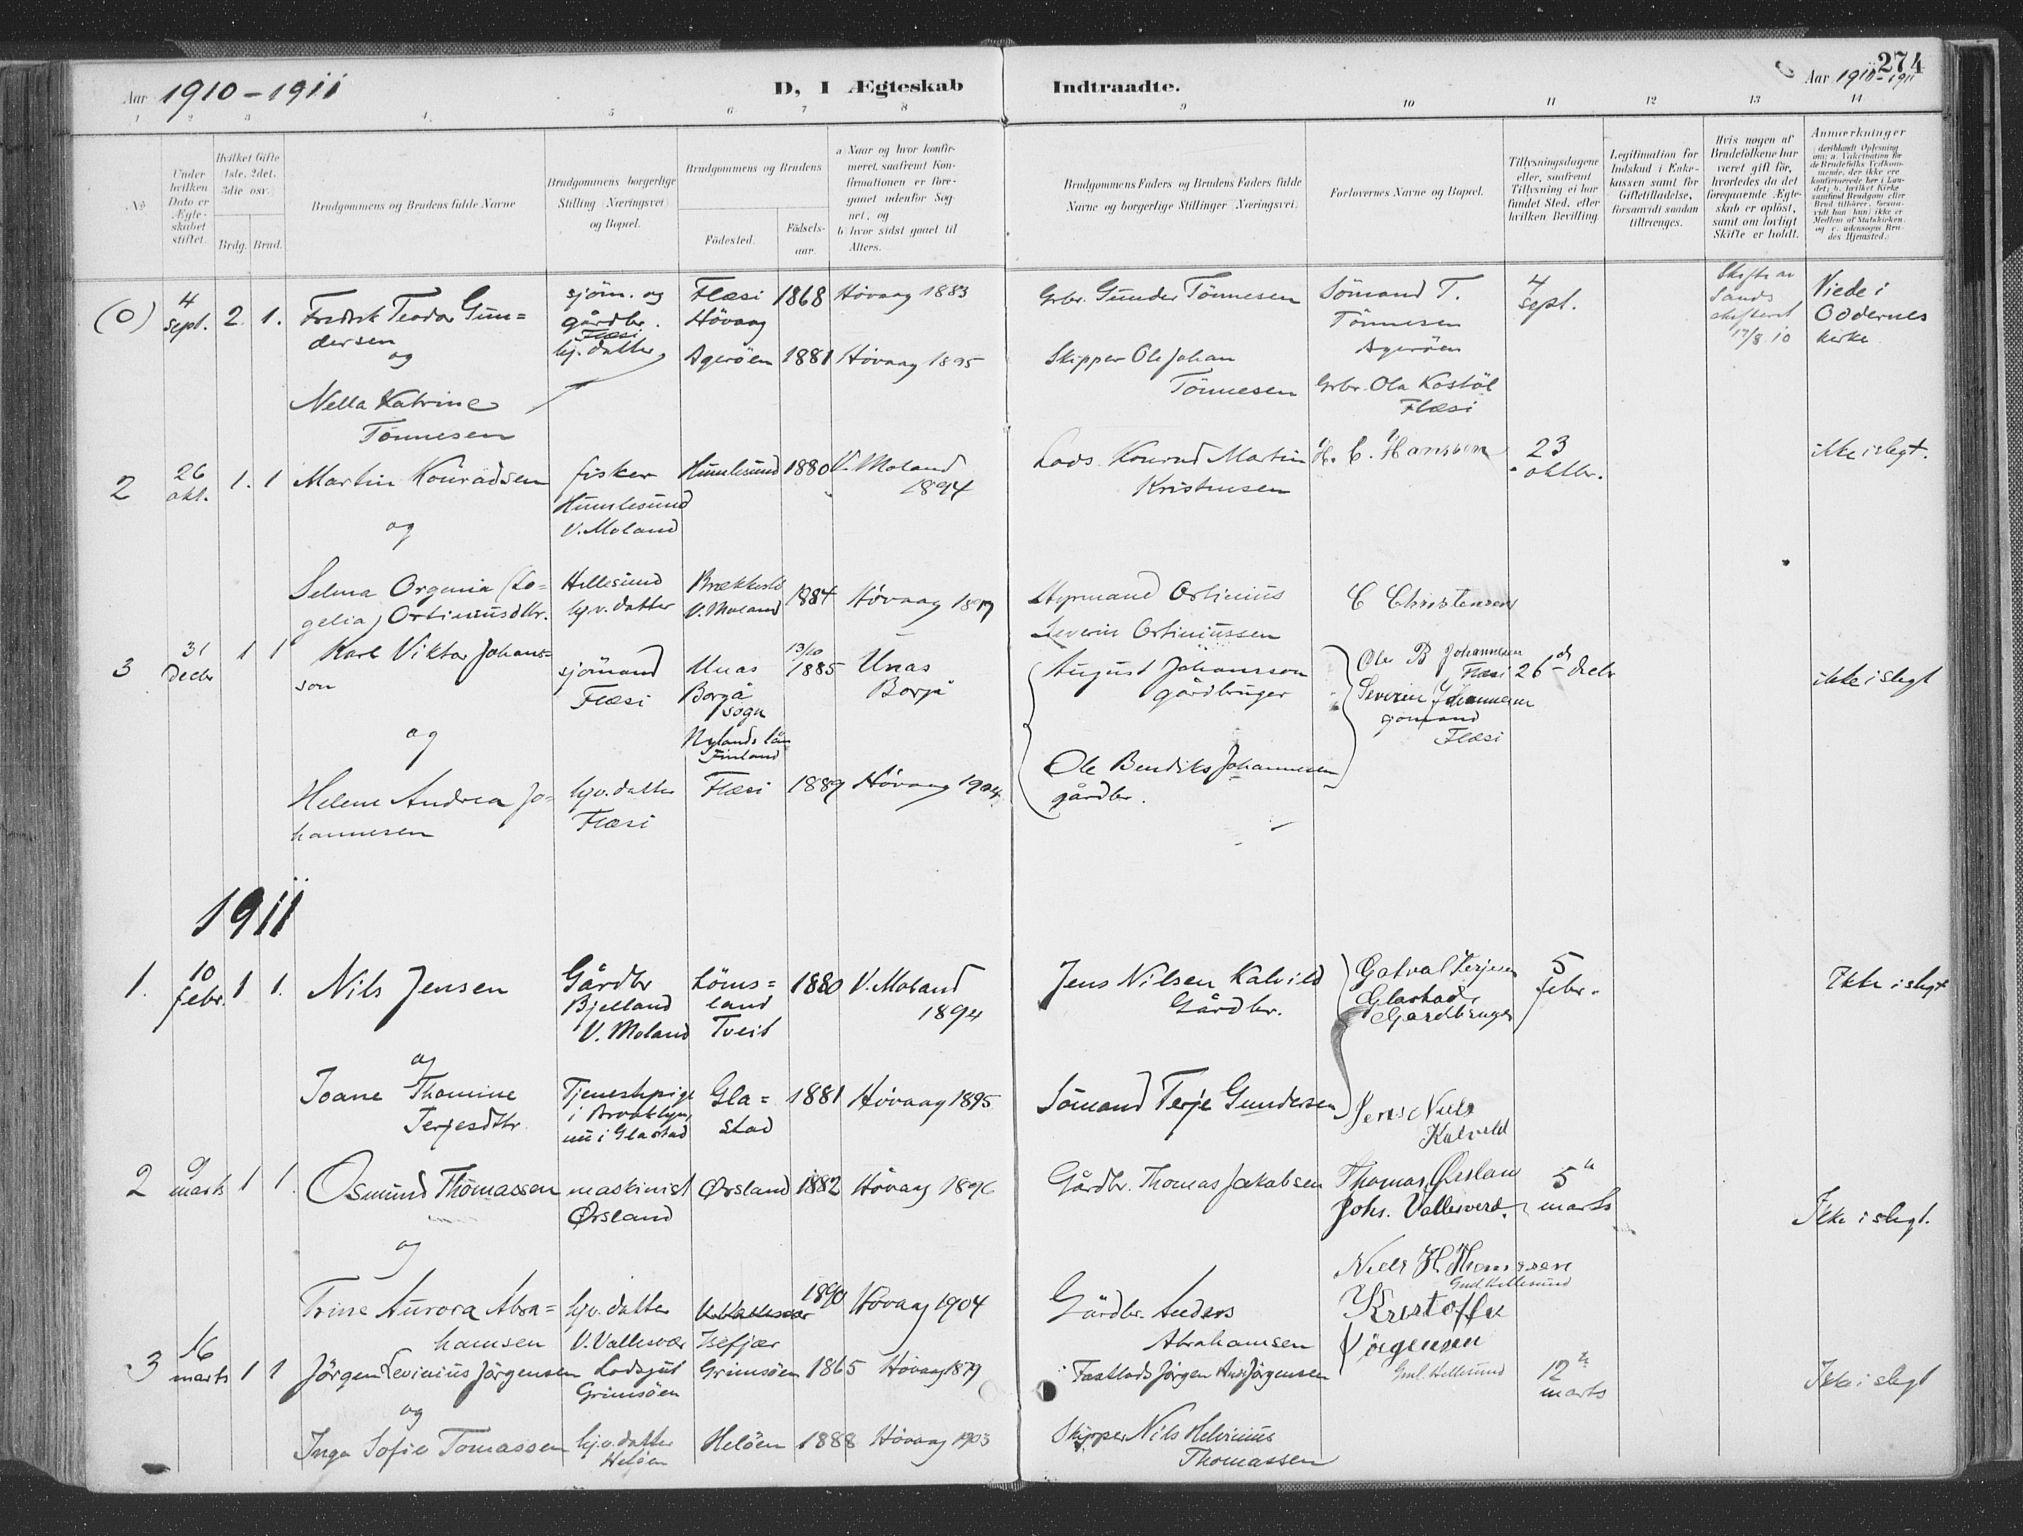 Aar 1910-1911
D, I Ægteskab
Indtraadte.
Aar 1910-1911
274
1 2 3 4 5 6 7 8 9 10 11 12 13 14
No
Under hvilken Dato er Ægteskabet stiftet.
Hvilket Gifte 1ste, 2det, 3die osv.
Brdg. Brud.
Brudgommens og Brudens fulde Navne
Brudgommens borgerlige Stilling (Næringsvei) og Bopæl.
Brudgommens og Brudens
Födested.
Födselsaar.
a Naar og hvor konfirmeret, saafremt Konfirmationen er foregaaet udenfor Sognet, og
b hvor sidst gaaet til Alters.
Brudgommens Faders og Brudens Faders fulde Navne og borgerlige Stillinger (Næringsvei)
Forlovernes Navne og Bopæl.
Tillysningsdagene eller, saafremt Tillysning ei har fundet Sted, efter hvilken Bevilling
Legitimation for Indskud i Enkekassen samt for Giftetilladelse, forsaavidt saadan tiltrænges.
Hvis nogen af Brudefolkene har været gift för, hvorledes da det foregaaende Ægteskab er oplöst, samt om lovligt Skifte er holdt.
Anmærkninger
(0) 4 sept. 2. 1. Fredrik Teodor Gundersen
sjöm. og gårdbr. Flæsi
Flæsi Høvaag 1868 Høvaag 1883
Grbr. Gunder Tönnesen
Sömand T. Tönnesen Agerøen
4 sept.
Skifte av Sands skifteret 17/8 10
Viede i Oddernes kirke
og
Nella Katrine Tönnesen
hj. datter Agerøen 1881 Høvaag 1895
Skipper Ole Johan Tönnesen
Grbr. Ola Kostöl Flæsi
2 26 okt. 1. 1 Martin Konradsen
fisker Humlesund V. Moland
Humlesund 1880 V. Moland 1894
Lods. Konrad Martin Kristensen
H. C. Hanssen
23 oktbr.
ikke i slegt.
og
Selma Orgenia (Logelia) Ortiniusdtr.
Hellesund hjv. datter
V. Moland 1884 Høvaag 1899
Styrmand Ortinius Severin Ortiniussen
C Christensen
3 31 Decbr 1 1 Karl Viktor Johansson
sjömand Flæsi
Unas Borgå sogn Nylands län Finland
13/10 1885 Unas Borgå
August Johansson gårdbruger
Ole B Johannesen Flæsi
Severin Johannesen Flæsi
26de decbr
ikke i slegt
og
Helene Andrea Johannesen
hjv. datter Flæsi
Flæsi 1889 Høvaag 1904
Ole Bendiks Johannesen gårdbr.
1911
1. 10 febr. 1 1. Nils Jensen
Gårdbr Bjelland V. Moland
Lömsland Tveit 1880 V. Moland 1894
Jens Nilsen Kalvild Gårdbr.
Gotval Terjesen Glastad, Gardbruger
5 febr.
Ikke i slegt
og
Joane Thomine Terjesdtr
Tjenestepige i Brooklyn, nu i Glastad
Glastad 1881 Høvaag 1895
Sömand Terje Gundersen
Jens Niels Kalvild
2 9 marts 1 1. Osmund Thomassen
maskinist Ørsland
Ørsland 1882 Høvaag 1896
Gårdbr. Thomas Jakobsen
Thomas Ørslan
Johs. Vallesverd.
5te marts
Ikke i slegt.
og
Trine Aurora Abrahamsen
hjv. datter V. Vallesvær
Isefjær 1890 Høvaag 1904
Gårdbr. Anders Abrahamsen
Niels H Thomassen
Gml Hellesund
Kristoffer Jørgensen
Gml. Hellesund
3 16 marts 1 1 Jörgen Levinius Jörgensen
Lodsgut Grimsöen
Grimsöen 1865 Høvaag 1879
Fastlods Jörgen And. Jörgensen
12te marts
Ikke i slegt
og
Inga Sofie Tomassen
hjv. datter Helöen
Helöen 1888 Høvaag 1903
Skipper Nils Helvinius Thomassen